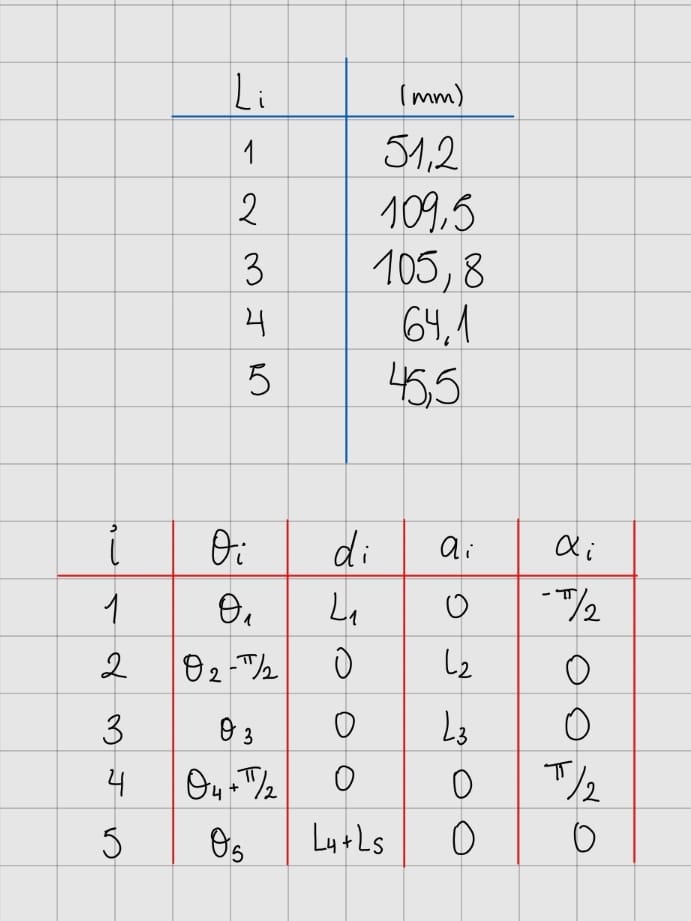 Li (mm)
1 51,2
2 109,5
3 105,8
4 64,1
5 45,5
i θi di ai αi
1 θ1 L1 0 -π/2
2 θ2-π/2 0 L2 0
3 θ3 0 L3 0
4 θ4+π/2 0 0 π/2
5 θ5 L4+L5 0 0